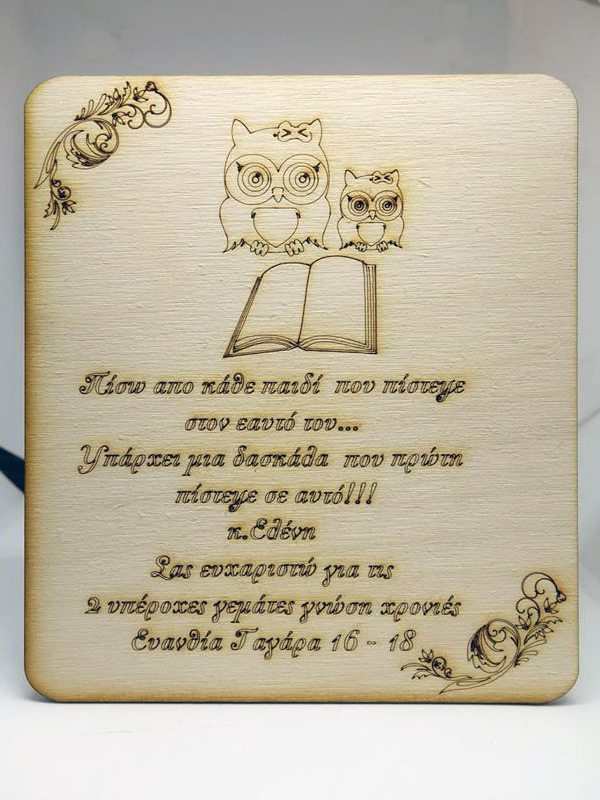 Πίσω απο κάθε παιδί που πίστεψε
στον εαυτό του...
Υπάρχει μια δασκάλα που πρώτη
πίστεψε σε αυτό!!!
κ.Ελένη
Σας ευχαριστώ για τις
2 υπέροχες γεμάτες γνώση χρονιές
Ευανθία Γαγάρα 16 - 18